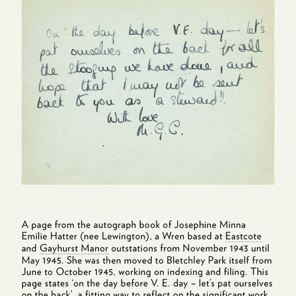 On the day before V.E. day — let's
pat ourselves on the back for all
the stooging we have done, and
hope that I may not be sent
back to you as 'a steward'!!
With love
M.G.C.
A page from the autograph book of Josephine Minna
Emilie Hatter (nee Lewington), a Wren based at Eastcote
and Gayhurst Manor outstations from November 1943 until
May 1945. She was then moved to Bletchley Park itself from
June to October 1945, working on indexing and filing. This
page states 'on the day before V. E. day – let's pat ourselves
on the back', a fitting way to reflect on the significant work